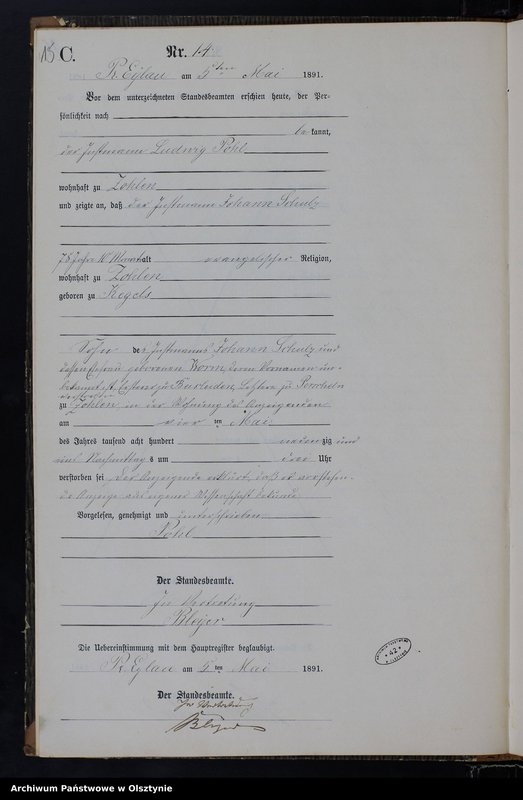 15 C.
Nr. 14
Pr. Eylau am 5ten Mai 1891.
Vor dem unterzeichneten Standesbeamten erschien heute, der Per-
sönlichkeit nach
be kannt,
der Instmann Ludwig Pohl
wohnhaft zu Zohlen
und zeigte an, daß der Instmann Johann Schulz
78 Jahre 10 Monat alt evangelischer Religion,
wohnhaft zu Zohlen
geboren zu
Sohn des Instmanns Johann Schulz und
dessen Ehefrau geborenen Worm, deren Vornamen un-
bekannt ist, Ersterer zu Letztere zu
verstorben
zu Zohlen in der Wohnung des Anzeigenden
am vier ten Mai
des Jahres tausend acht hundert neunzig und
eins Nachmittags um drei Uhr
verstorben sei. Der Anzeigende erklärt, daß er vorstehen-
de Anzeige aus eigener Wissenschaft
Vorgelesen, genehmigt und unterschrieben
Pohl
Der Standesbeamte.
In Vertretung
Die Uebereinstimmung mit dem Hauptregister beglaubigt.
Pr. Eylau am 5ten Mai 1891.
Der Standesbeamte.
In Vertretung
42
Archiwum Państwowe w Olsztynie